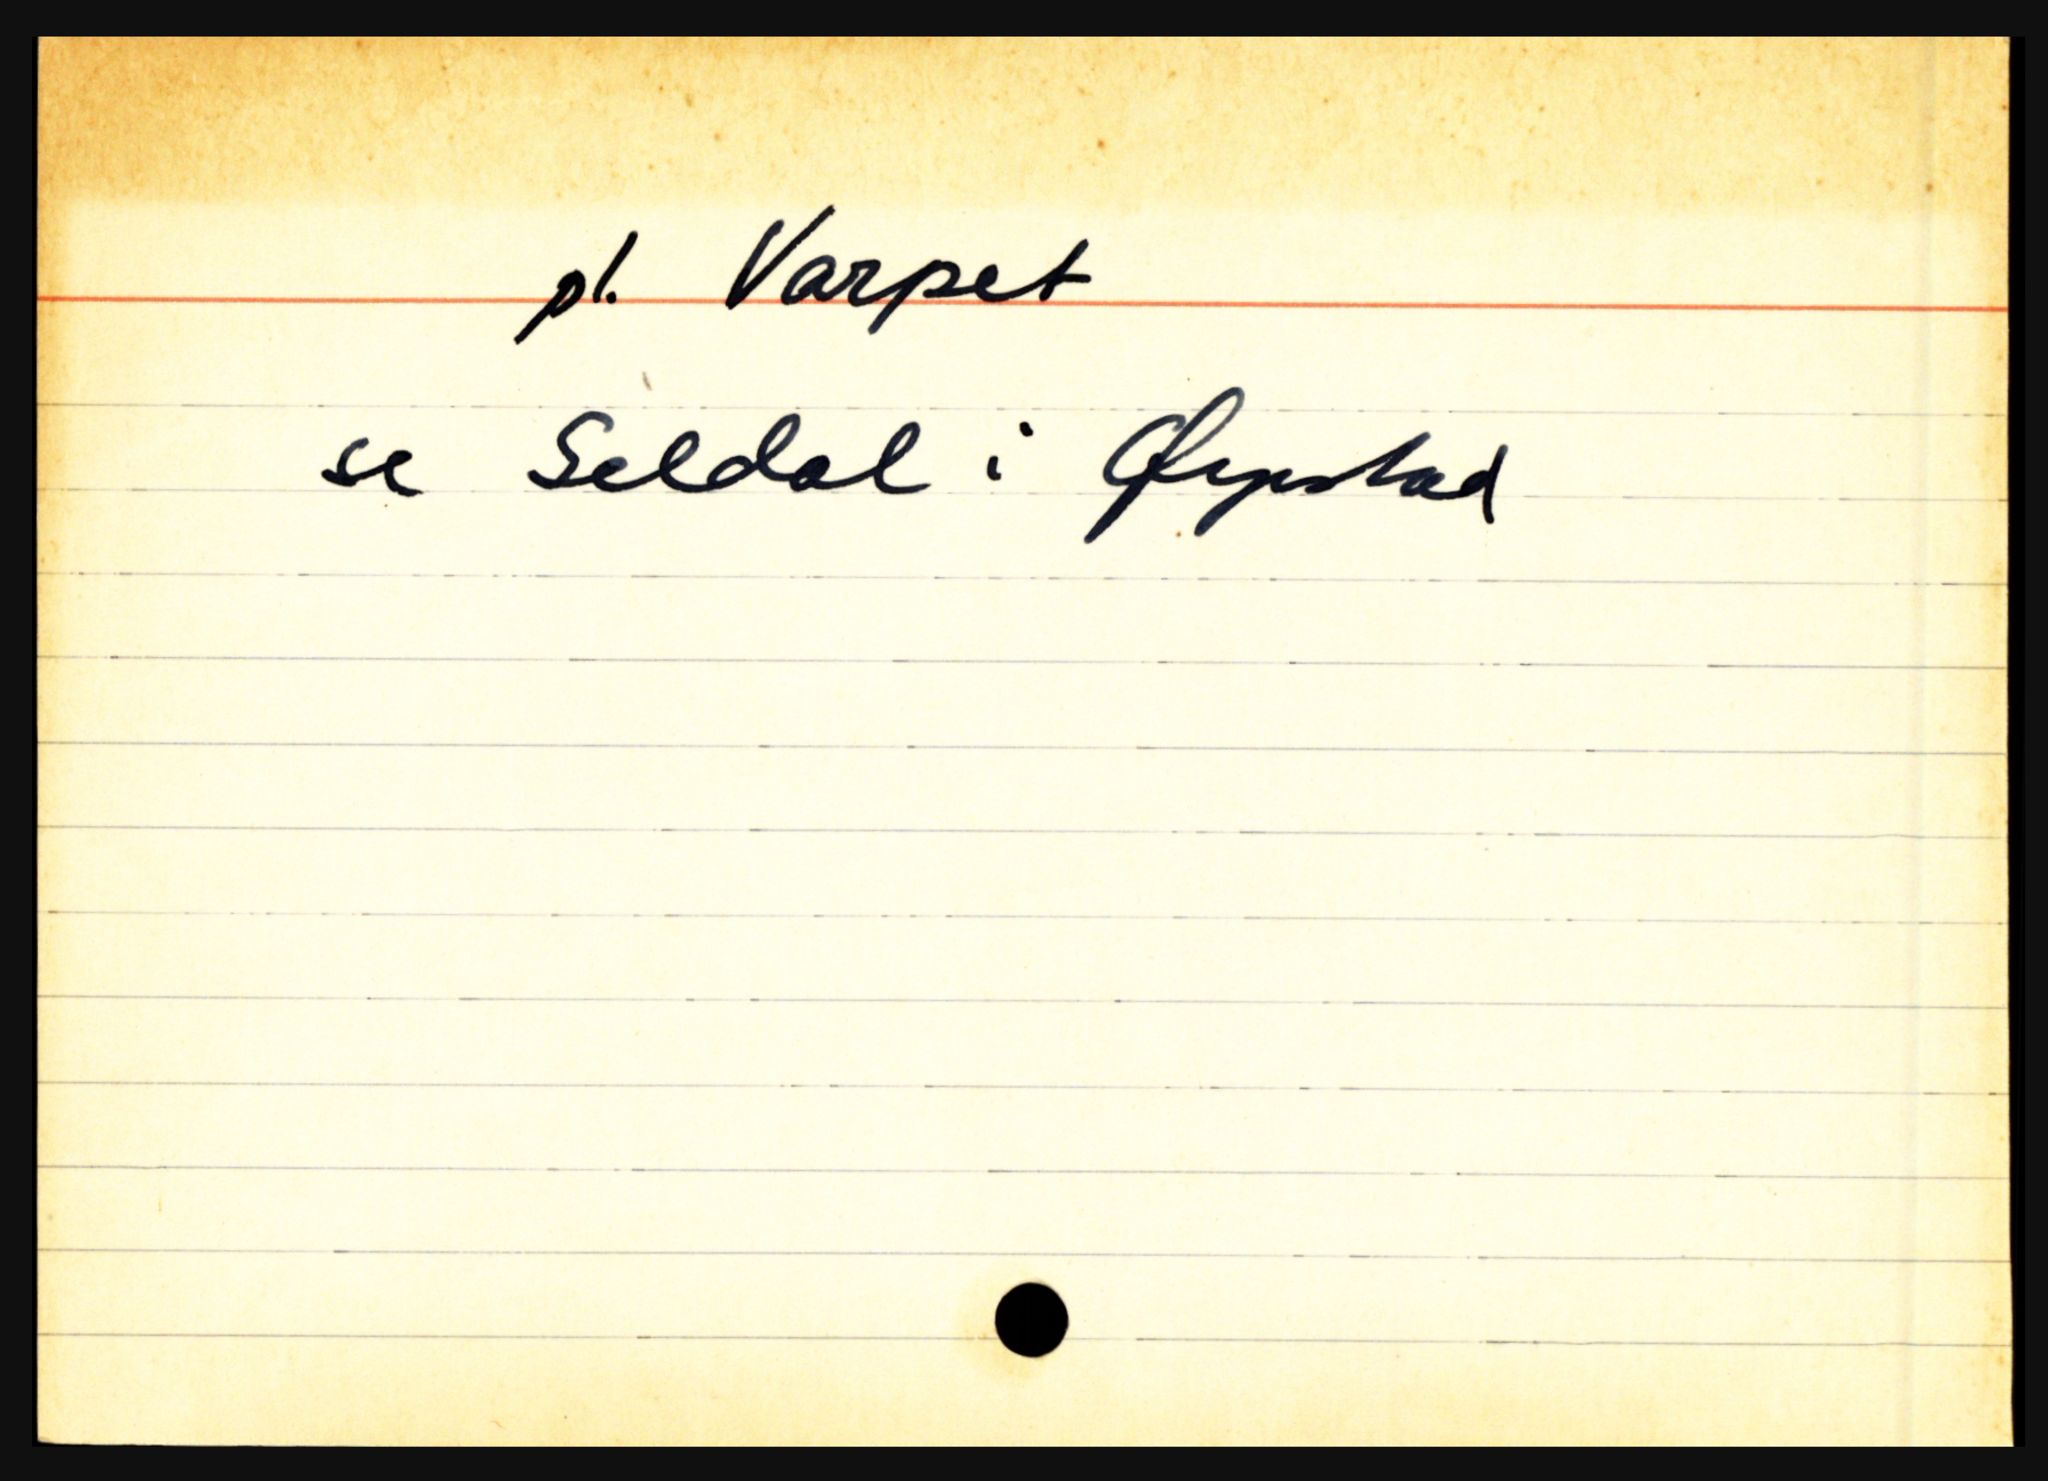 pl. Varpet
se Seldal i Øyestad